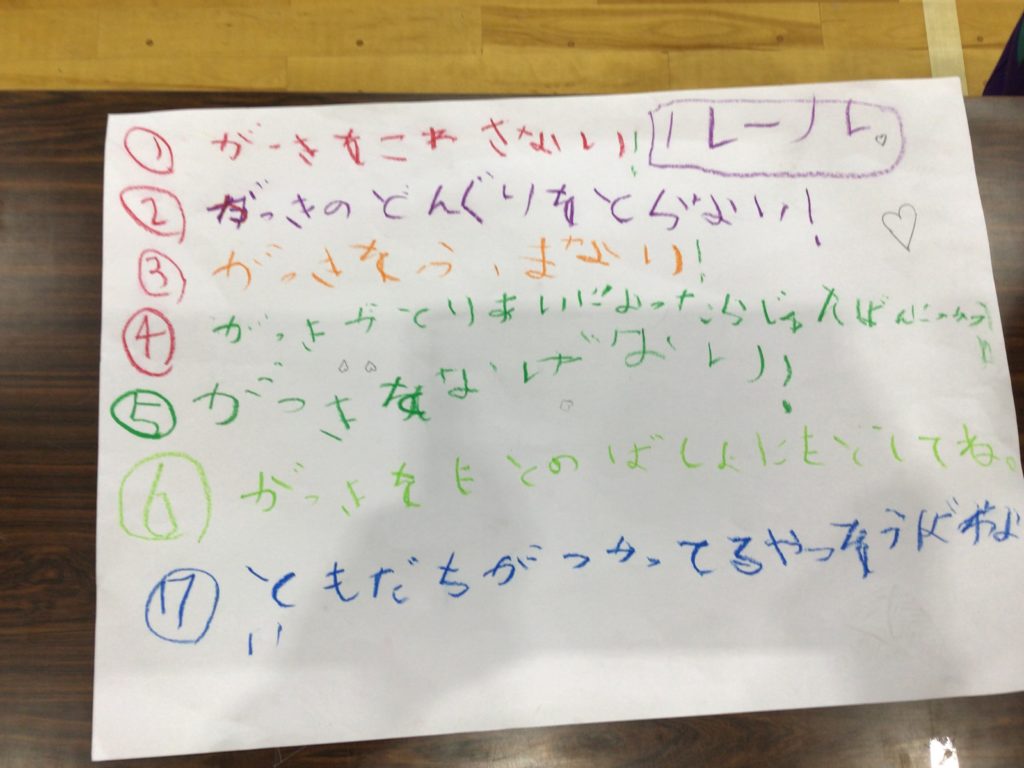 ルール。
① がっきをこわさない!
② がっきのどんぐりをとらない!
③ がっきをふまない!
④ がっきがとりあいになったらじゅんばんにつかう
⑤ がっきをなげない!
⑥ がっきをもとのばしょにもどしてね。
⑦ ともだちがつかってるやつをうばわな
い